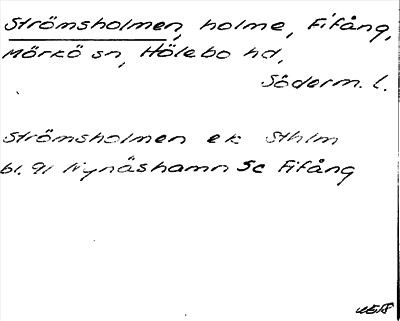 Strömsholmen, holme, Fifång,
Mörkö sn, Hölebo hd,
Söderm. l.
Strömsholmen ek Sthlm
bl. 91 Nynäshamn Sc Fifång